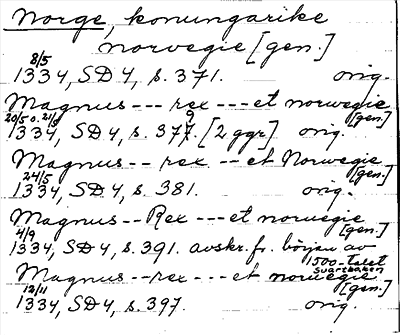 Norge, konungarike
norvegie [gen.]
8/5
1334, SD 4, s. 371. orig.
Magnus --- rex --- et norwegie [gen.]
20/5 o. 21/5
1334, SD 4, s. 379. [2 ggr]. orig.
Magnus -- rex -- et Norwegie [gen.]
24/5
1334, SD 4, s. 381. orig.
Magnus -- Rex --- et norwegie [gen.]
4/9
1334, SD 4, s. 391. avskr. fr. början av 1500-talet
Svartbäcken
Magnus -- rex --- et norwegie [gen.]
12/11
1334, SD 4, s. 397. orig.